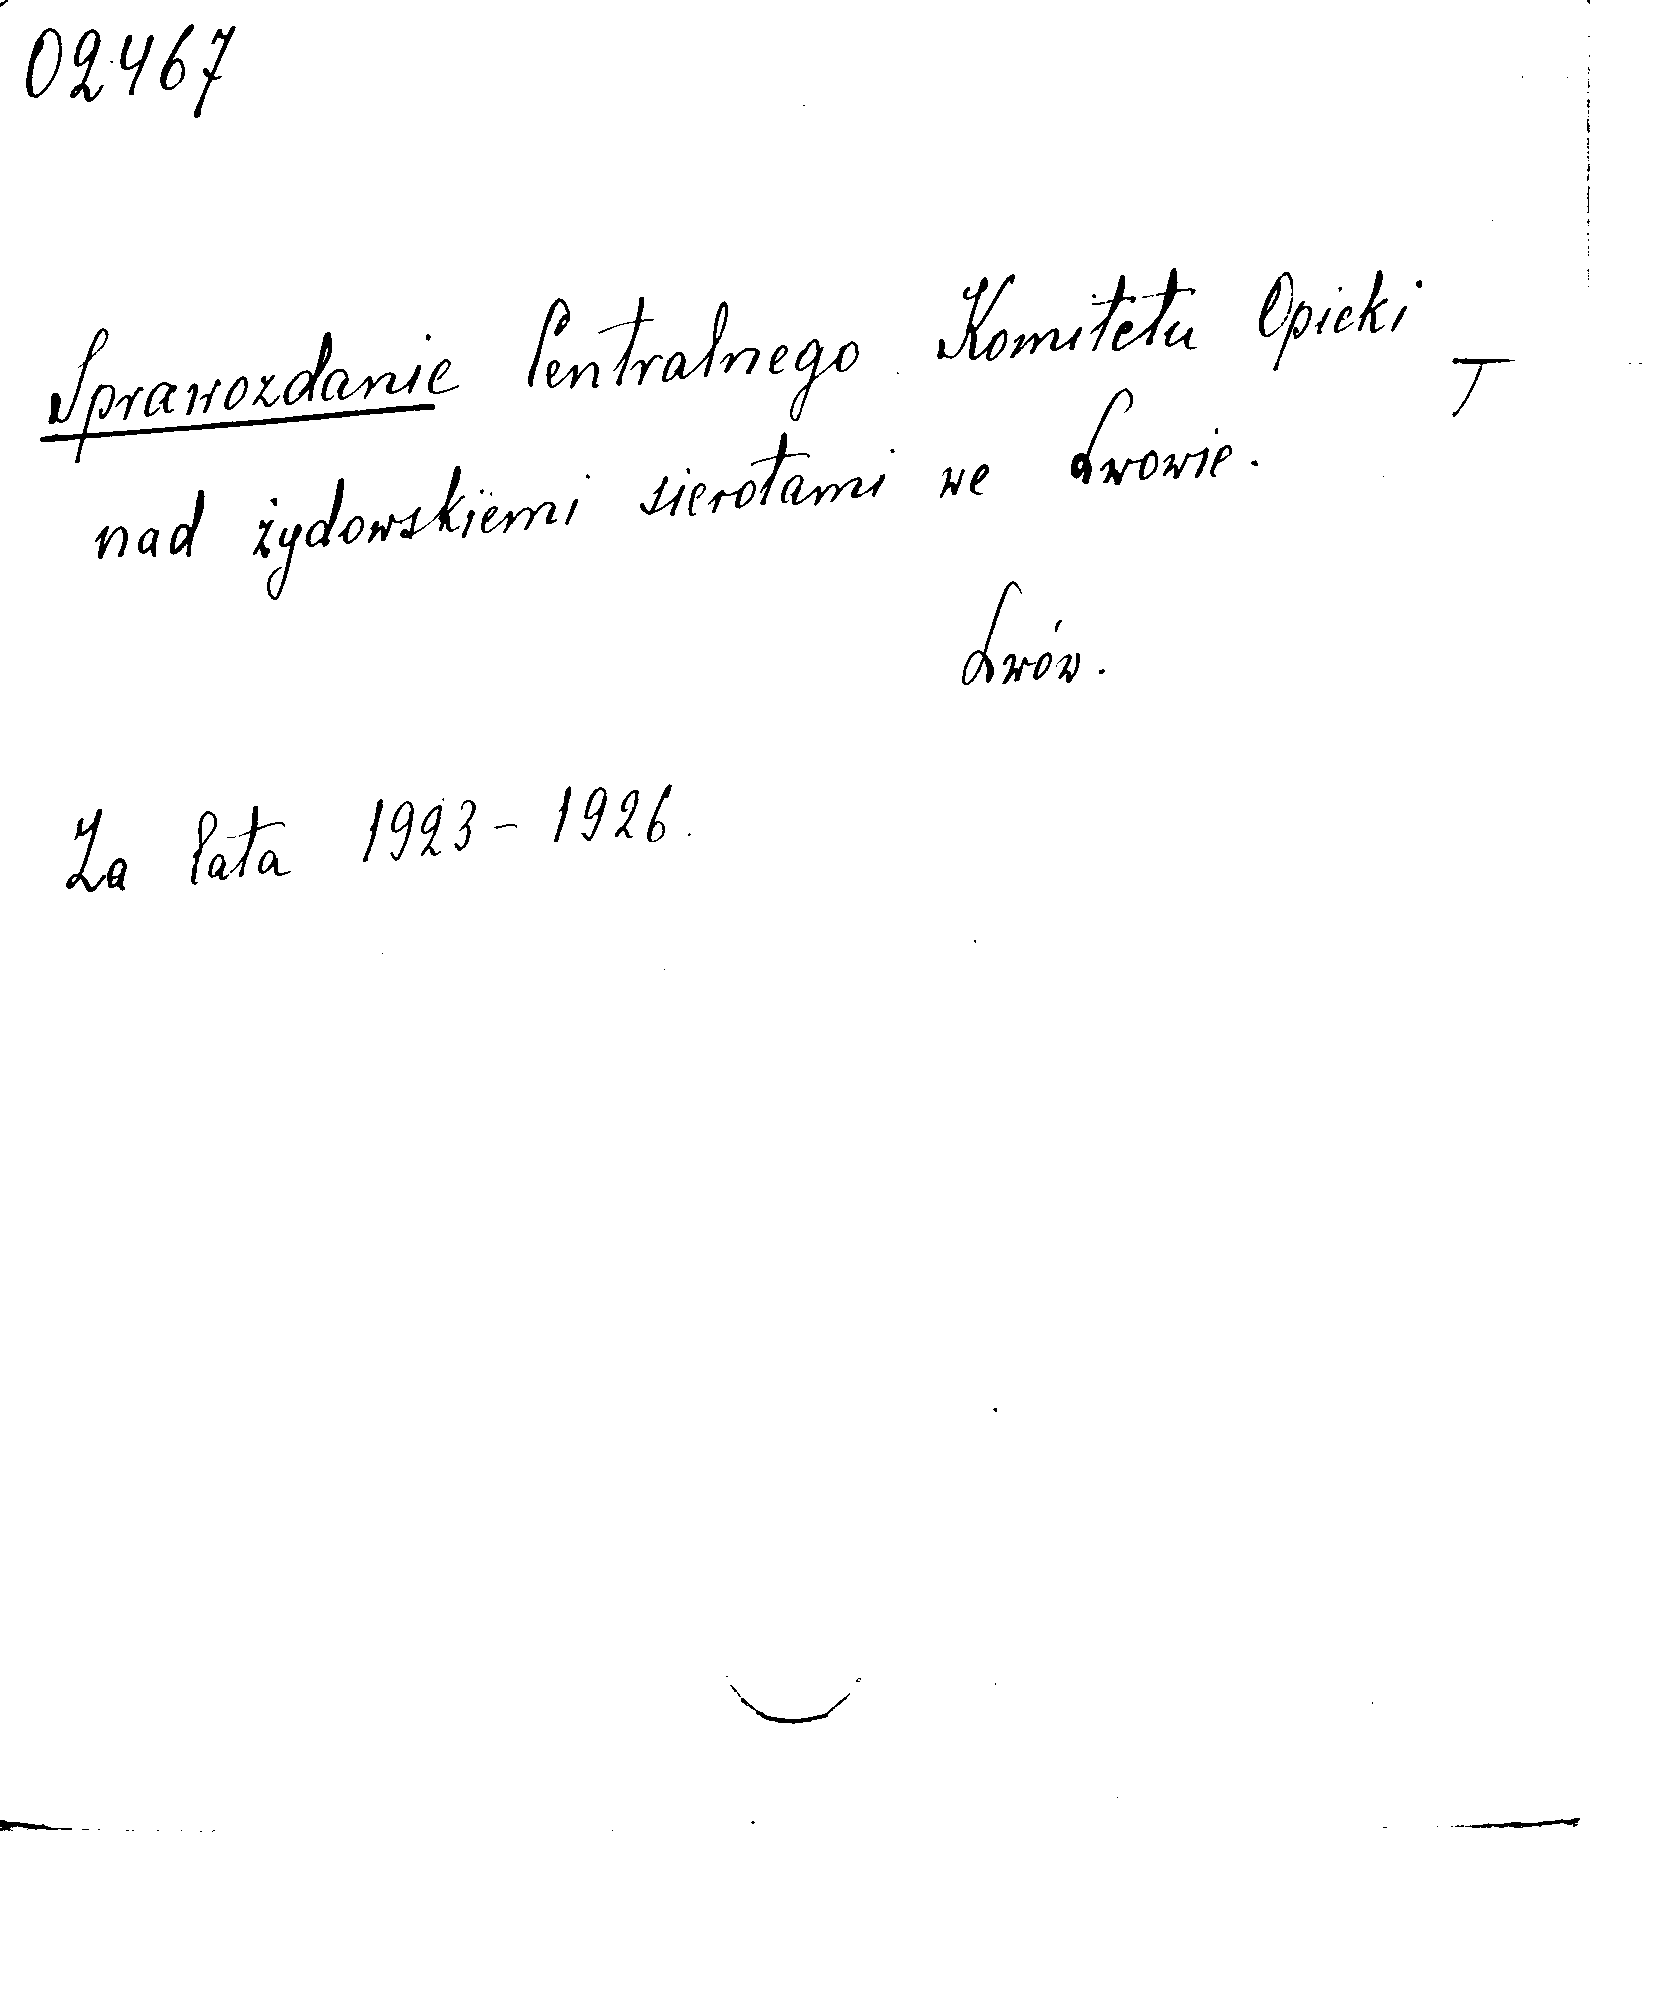 02467
Sprawozdanie Centralnego Komitetu Opieki
T
nad żydowskiemi sierotami we Lwowie.
Lwów.
Za lata 1923-1926.